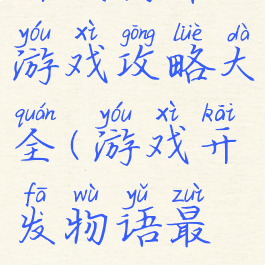 yóu xì gōng lüè dà
游戏攻略大
quán yóu xì kāi
全(游戏开
fā wù yǔ zuì
发物语最